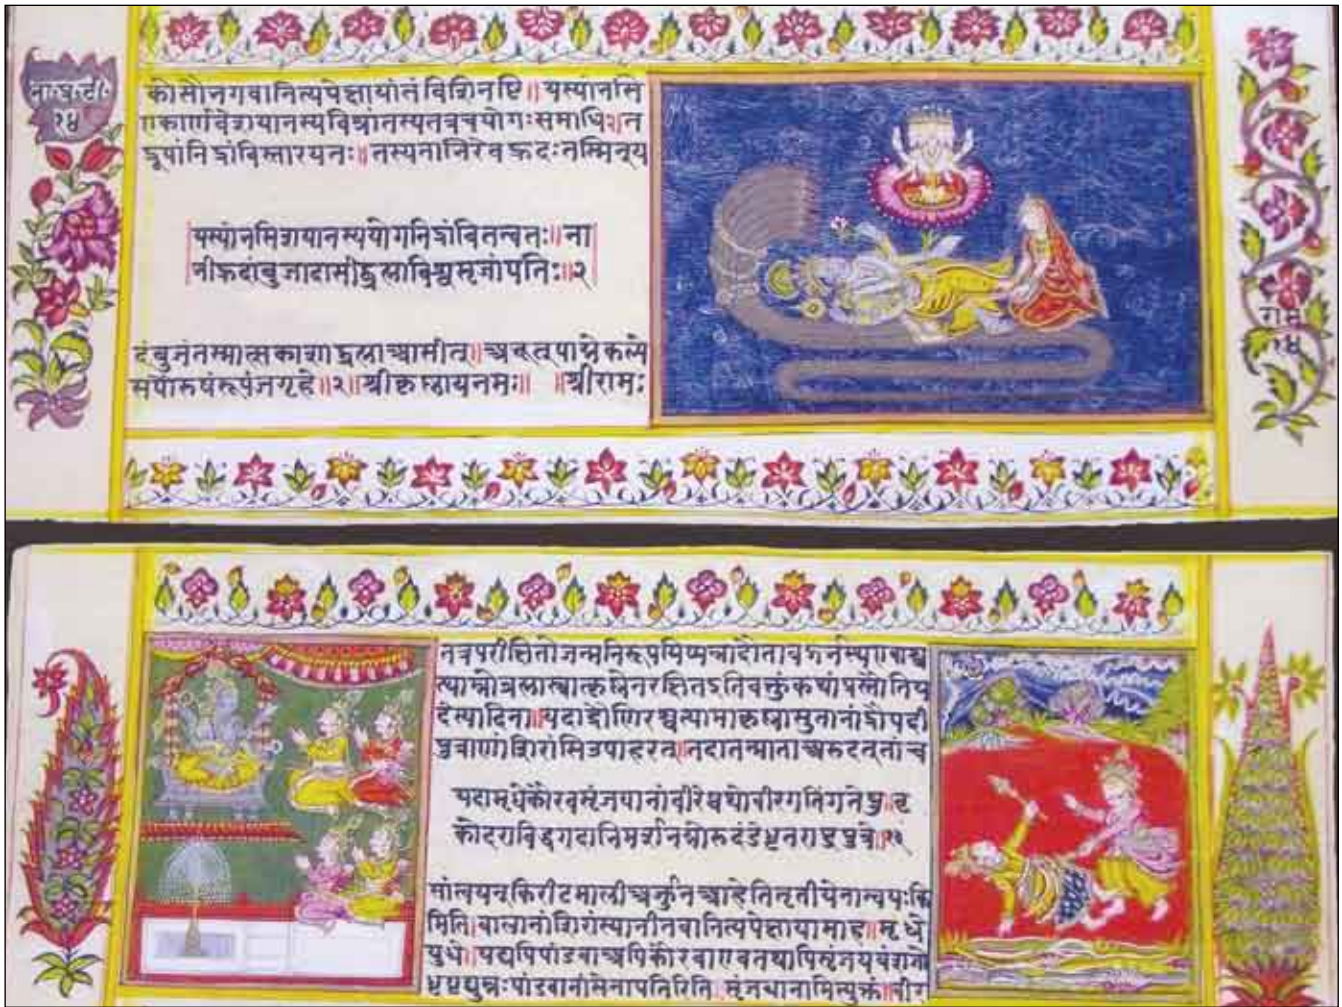 भा.प्र.टी.
१४
कोसौभगवानित्यपेक्षायांतंविशिनष्टि॥यस्यांभसि
एकार्णवेशयानस्यविश्रांतस्यतत्रचयोगःसमाधिःत
द्रूपांनिद्रांविस्तारयतः॥तस्यनाभिरेवह्रदःतस्मिन्य
यस्यांभसिशयानस्ययोगनिद्रांवितन्वतः॥ना
भीह्रदांबुजादासीद्ब्रह्माविश्वसृजांपतिः॥२
दंबुजंतस्मात्सकाशाद्ब्रह्माआसीत्॥अवतत्पाद्मेकल्पे
सपौरुषंरूपंजगृहे॥२॥श्रीकृष्णायनमः॥ ॥श्रीरामः
राम
१४
तत्रपरीक्षितोजन्मनिरूपयिष्यन्नादौतावद्गर्भस्थएवाश्व
त्थाम्नोब्रह्मास्त्रात्कृष्णेनरक्षितइतिवक्तुंकथांप्रस्तौतिय
देत्यादिना॥यदाद्रौणिरश्वत्थामाकृष्णासुतानांद्रौपदी
पुत्राणांशिरांसिउपाहरत्॥तदातन्माताअरुदत्तांच
यदामृधेकौरवसृंजयानांवीरेष्वथोवीरगतिंगतेषु॥वृ
कोदराविद्धगदाभिमर्शभग्नोरुदंडेधृतराष्ट्रपुत्रे॥१३
सांत्वयन्किरीटमालीअर्जुनआहेतितृतीयेनान्वयःकि
मिति।बालानांशिरांस्यानीतवानित्यपेक्षायामाह॥मृधे
युधे॥यद्यपिपांडवाअपिकौरवाएवतथापिसृंजयवंशजो
धृष्टद्युम्नःपांडवानांसेनापतिरिति।सृंजयानामित्युक्तं॥वीरा